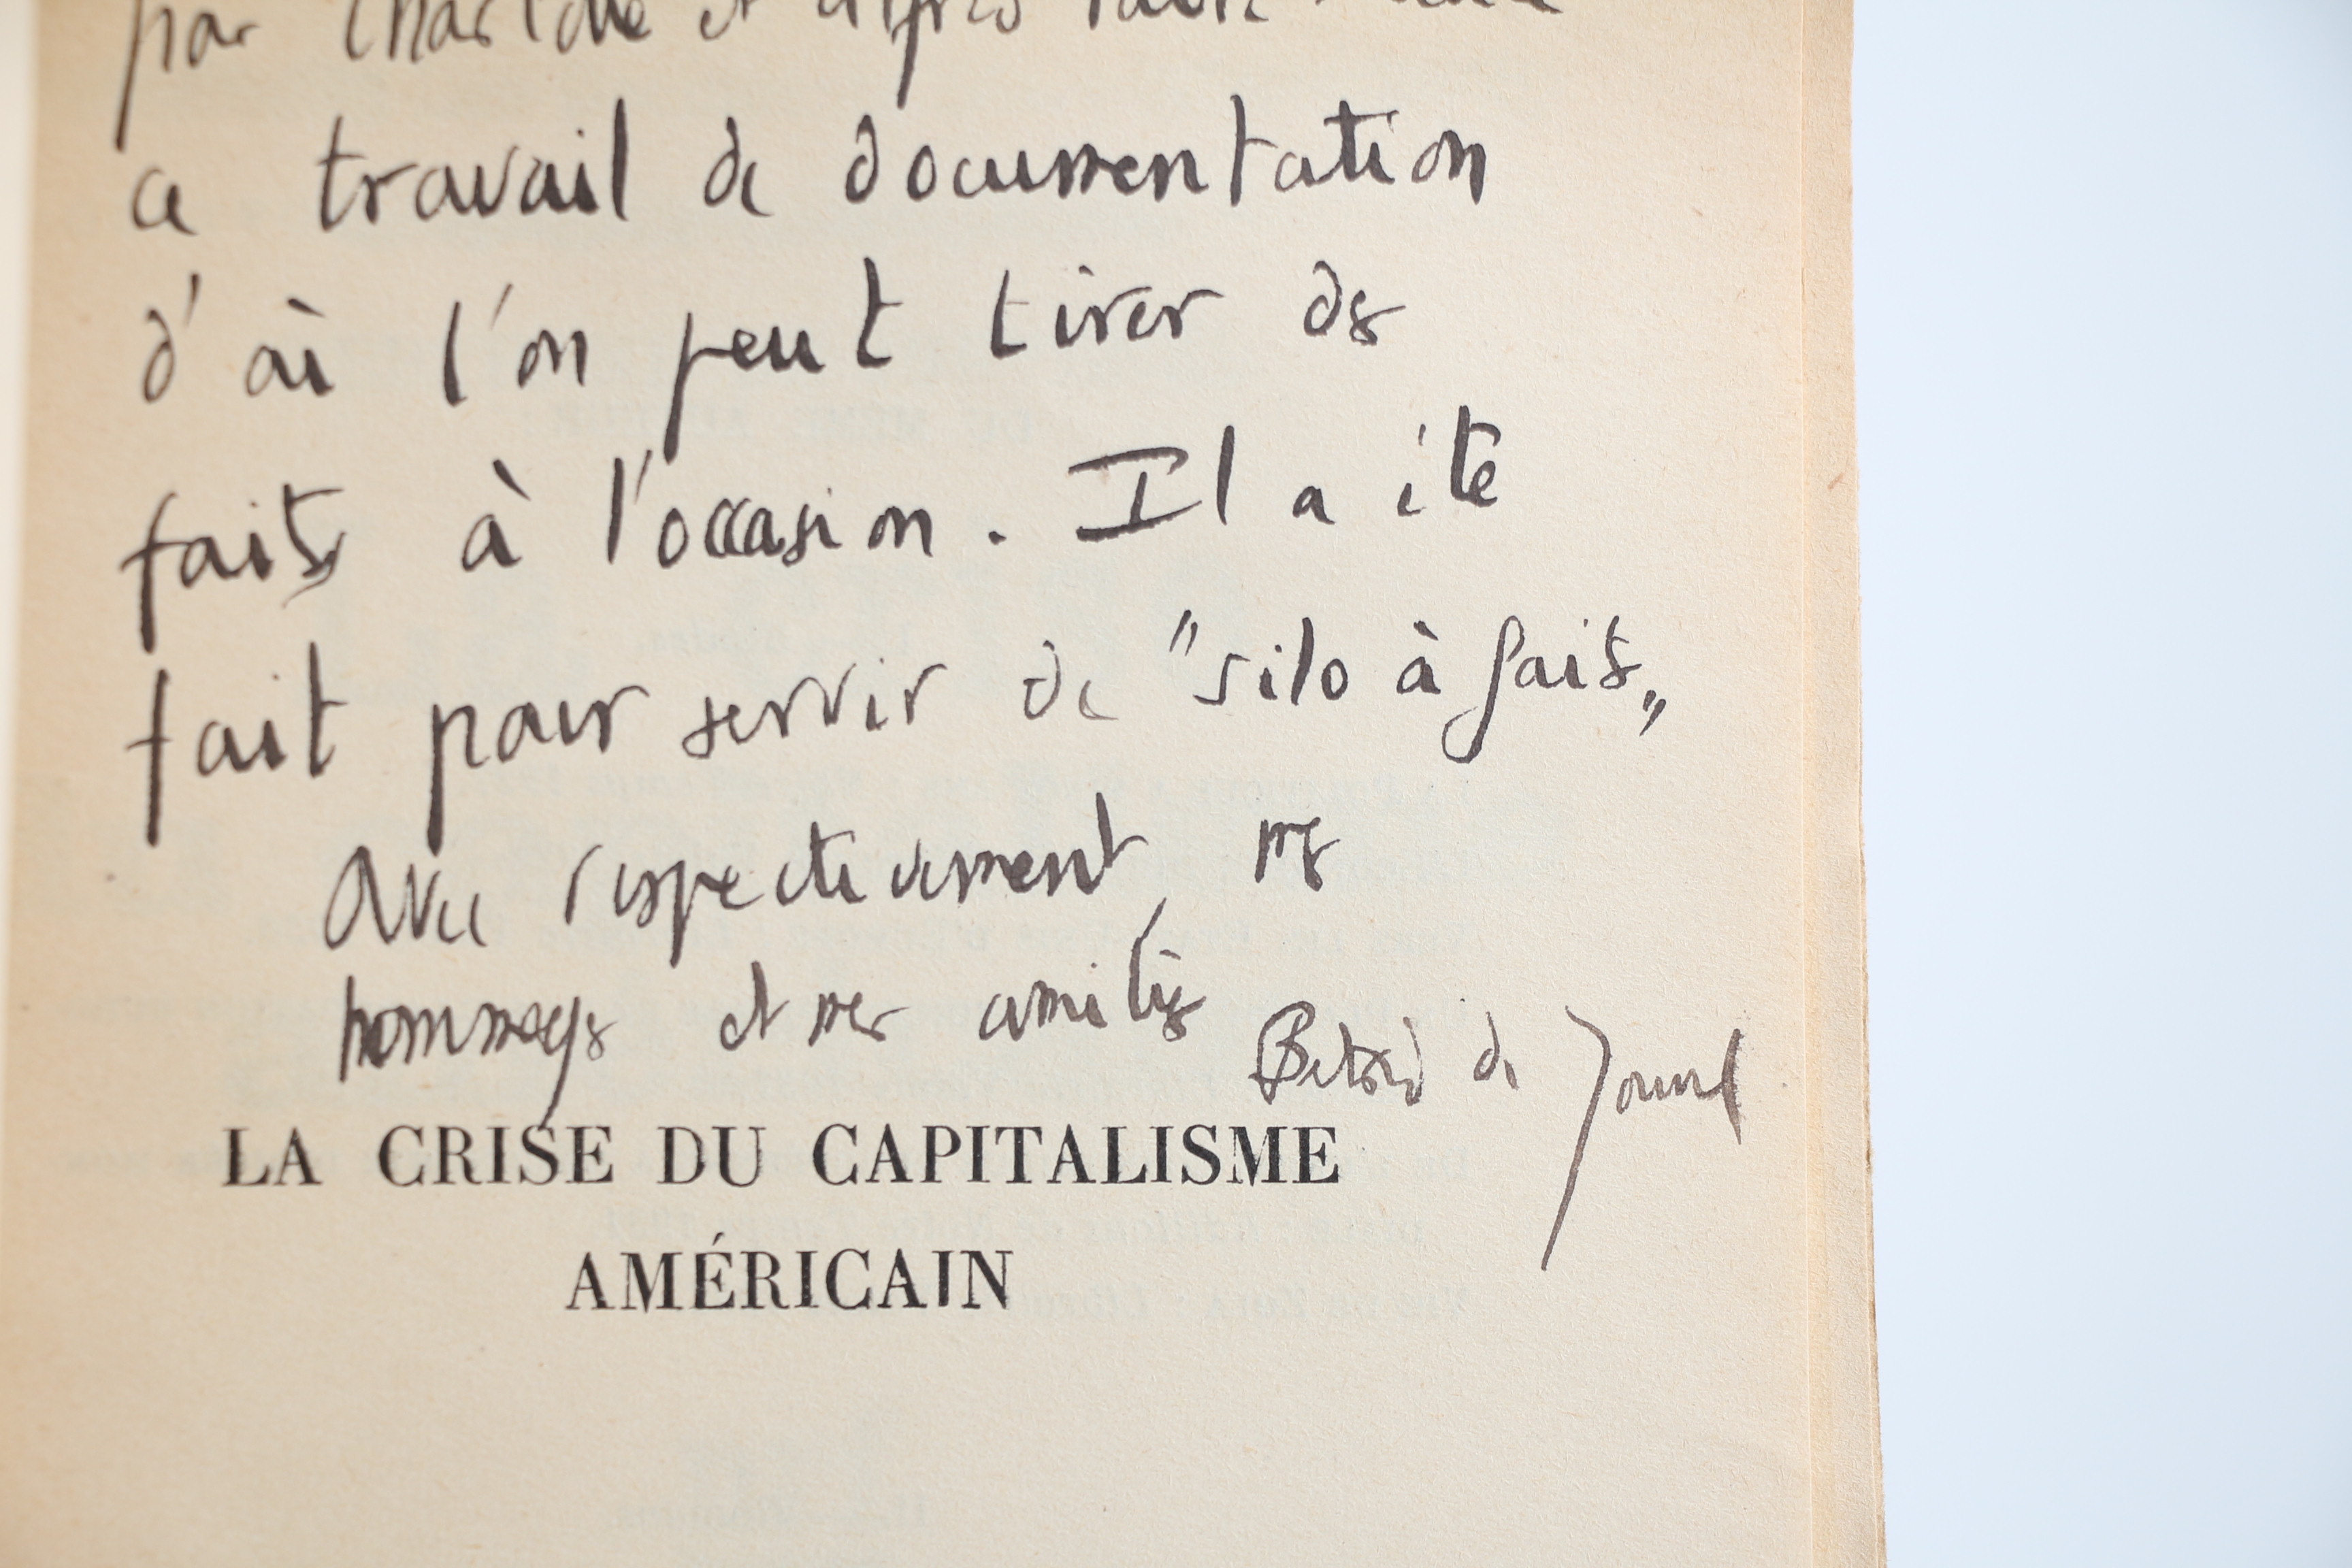 par Charlotte et après
ce travail de documentation
d'où l'on peut tirer des
faits à l'occasion. Il a été
fait pour servir de "silo à faits"
Avec respectivement, mes
hommages et mes amitiés
Bertrand de Jouvenel
LA CRISE DU CAPITALISME
AMÉRICAIN